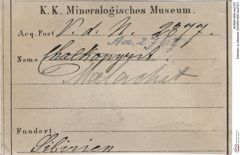 K. K. Mineralogisches Museum.
Acq. Post V. d. N. 2877.
Name Chalkopyrit
Malachit
Fundort
Sibirien